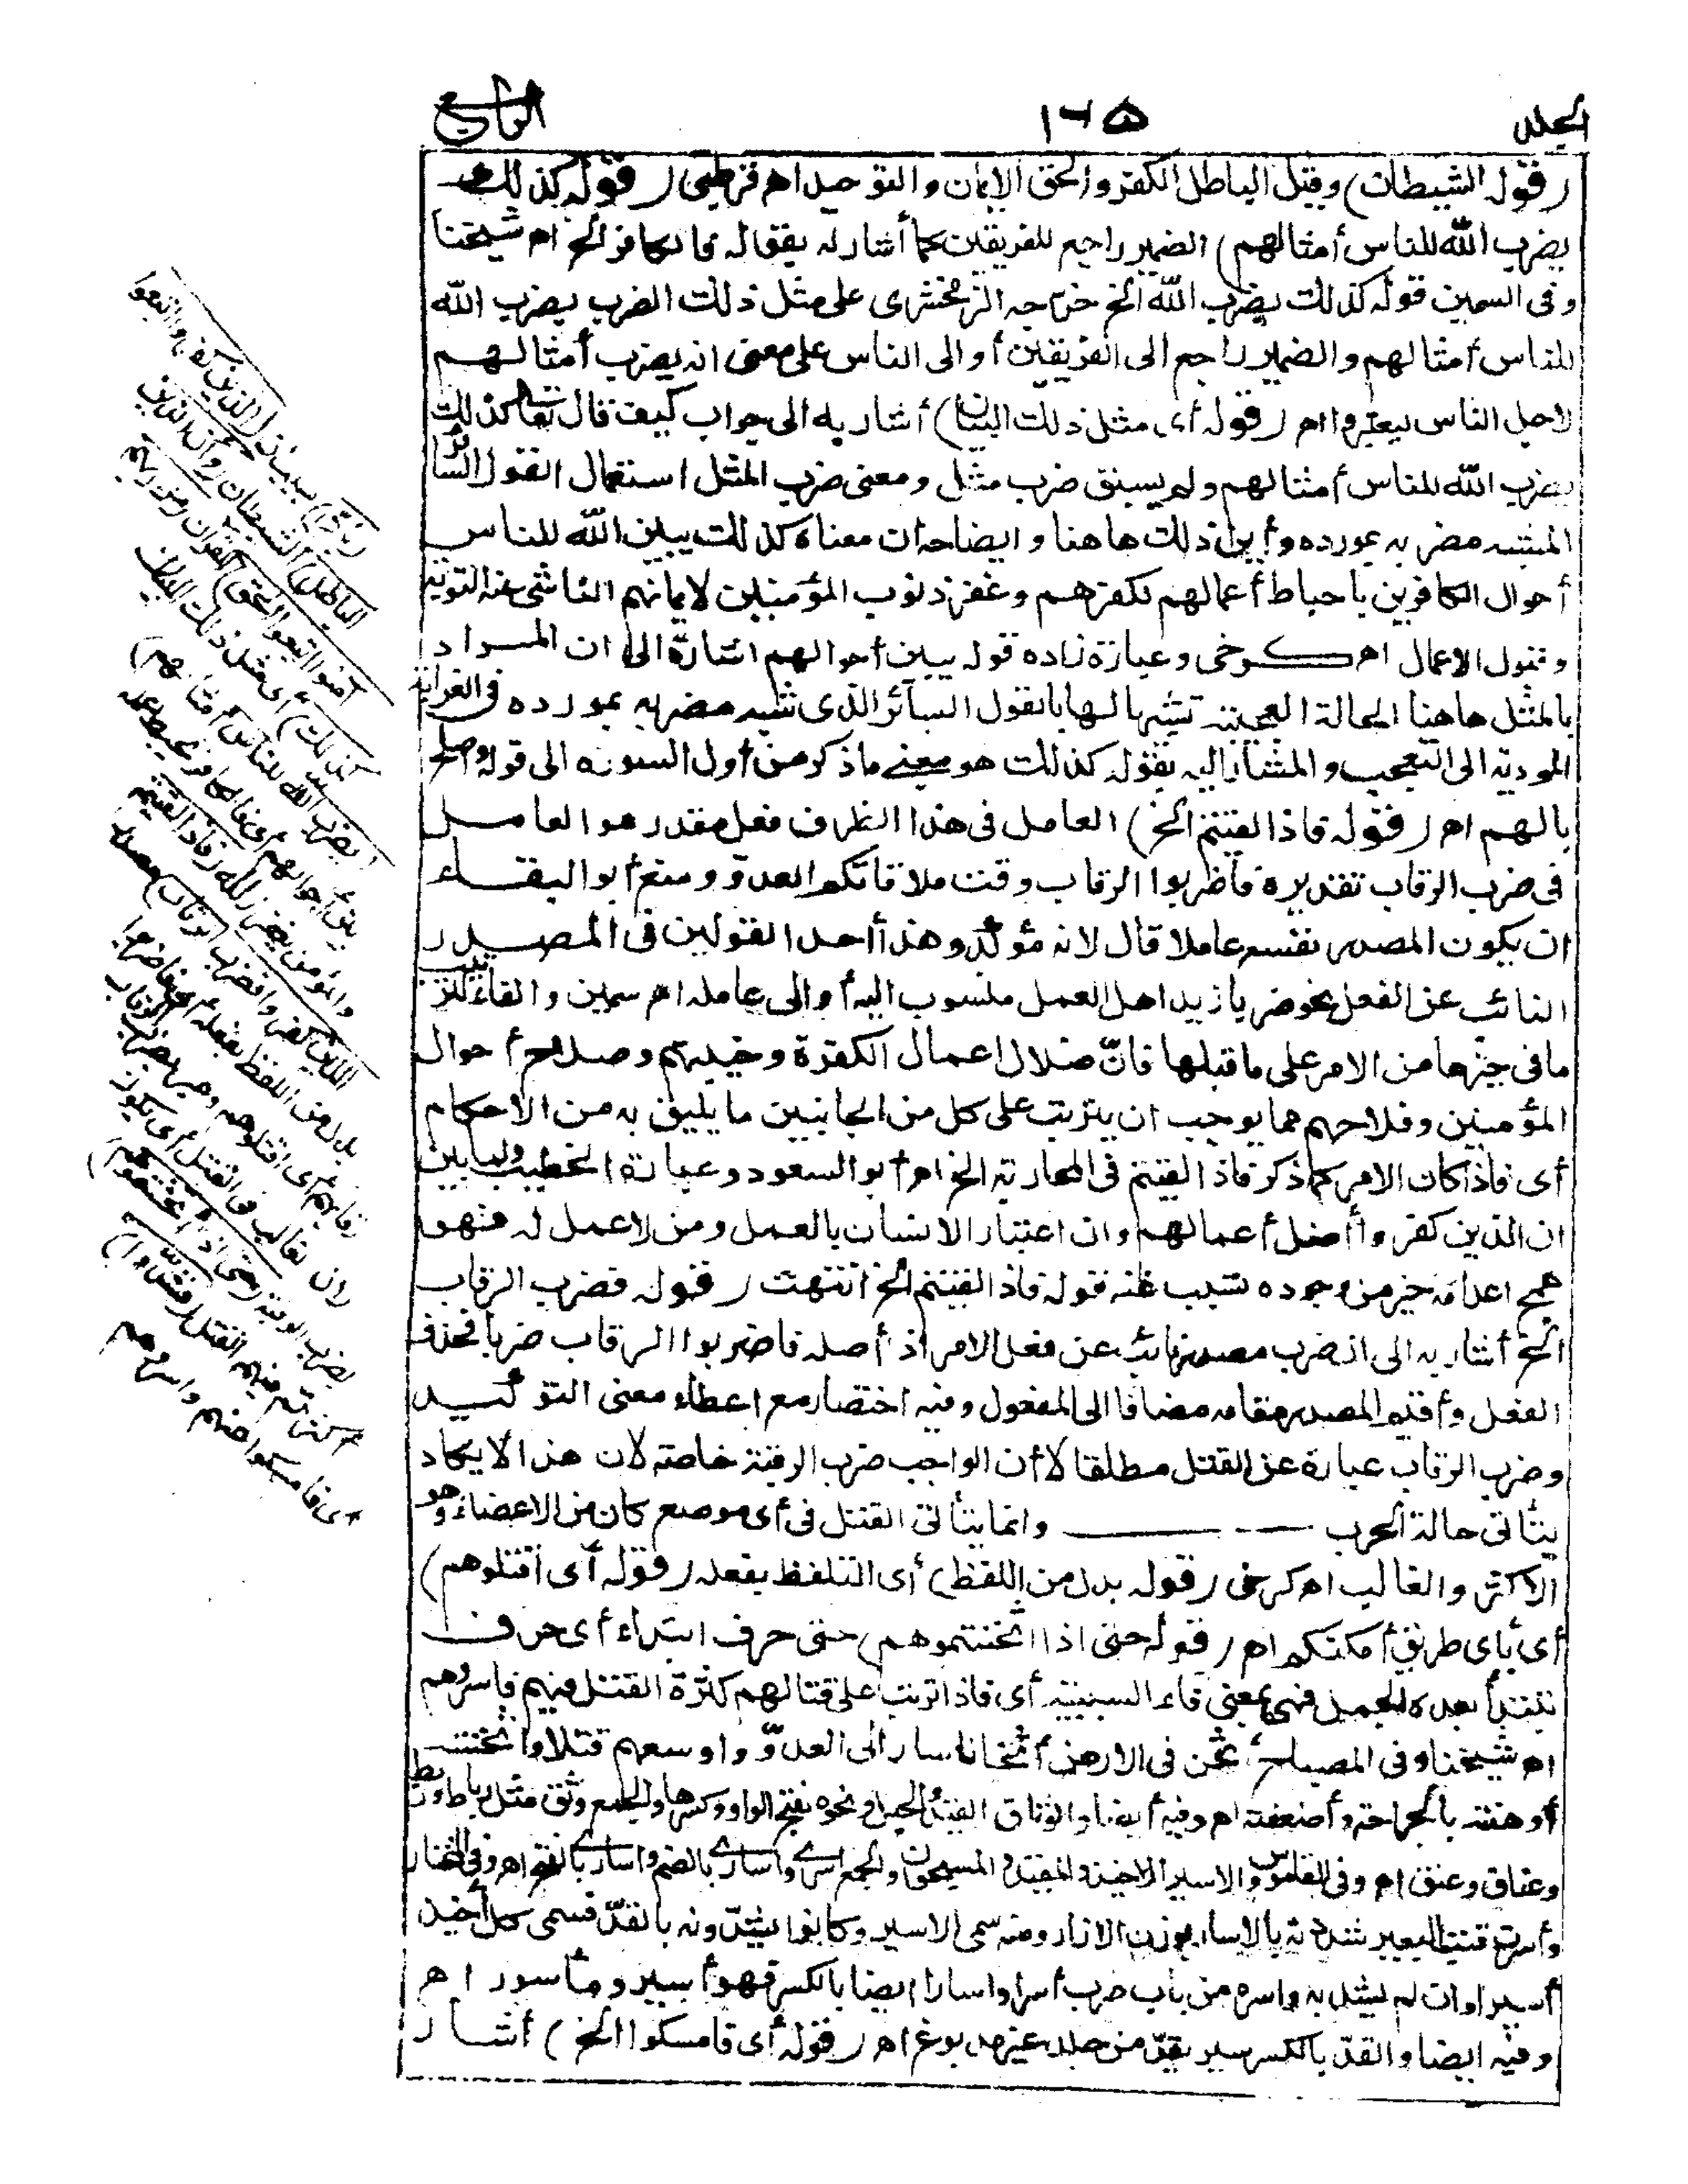 الجلد ١٦٥ الرابع
(قوله الشيطان) وقيل الباطل الكفر والحق الايمان والتوحيد اهـ قرطبى (قوله كذلك
يضرب الله للناس أمثالهم) الضمير راجع للفريقين كما أشار له بقوله فالكافر الخ اهـ شيخنا
وفى السمين قوله كذلك يضرب الله الخ خرّجه الزمخشرى على مثل ذلك الضرب يضرب الله
للناس أمثالهم والضمير راجع الى الفريقين أو الى الناس على معنى انه يضرب أمثالهم
لاجل الناس ليعتبروا اهـ (قوله أى مثل ذلك البيان) أشار به الى جواب كيف قال تعالى كذلك
يضرب الله للناس أمثالهم ولم يسبق ضرب مثل ومعنى ضرب المثل استعمال القول السائر
المشبه مضربه بمورده وأين ذلك هاهنا وايضاحه ان معناه كذلك يبين الله للناس
أحوال الكافرين باحباط أعمالهم لكفرهم وغفر ذنوب المؤمنين لايمانهم الناشئ عنه التوبة
وقبول الاعمال اهـ كرخى وعبارة زاده قوله يبين أحوالهم اشارة الى ان المراد
بالمثل هاهنا الحالة العجيبة تشبيها لها بالقول السائر الذى شبه مضربه بمورده فى الغرابة
المودية الى التعجب والمشار اليه بقوله كذلك هو معنى ما ذكر من أول السورة الى قوله وأصلح
بالهم اهـ (قوله فاذا لقيتم الخ) العامل فى هذا الظرف فعل مقدر هو العامل
فى ضرب الرقاب تقديره فاضربوا الرقاب وقت ملاقاتكم العدوّ ومنع أبو البقاء
ان يكون المصدر نفسه عاملا قال لانه مؤكد وهذا أحد القولين فى المصدر
النائب عن الفعل نحو ضربا زيدا هل العمل منسوب اليه أو الى عامله اهـ سمين والفاء لترتيب
ما فى حيزها من الامر على ما قبلها فانّ ضلال اعمال الكفرة وخيبتهم وصلاح أحوال
المؤمنين وفلاحهم مما يوجب ان يترتب على كل من الجانبين ما يليق به من الاحكام
أى فاذا كان الامر كما ذكر فاذا لقيتم فى المحاربة الخ اهـ أبو السعود وعبارة الخطيب ولما بين
ان الذين كفروا أضل أعمالهم وان اعتبار الانسان بالعمل ومن لا عمل له فهو
همج اعدامه خير من وجوده تسبب عنه قوله فاذا لقيتم الخ انتهت (قوله فضرب الرقاب
الخ أشار به الى ان ضرب مصدر نائب عن فعل الامر اذ أصله فاضربوا الرقاب ضربا فحذف
الفعل وأقيم المصدر مقامه مضافا الى المفعول وفيه اختصار مع اعطاء معنى التوكيد
وضرب الرقاب عبارة عن القتل مطلقا لا أن الواجب ضرب الرقبة خاصة لان هذا لا يكاد
يتأتى حالة الحرب وانما يتأتى القتل فى أى موضع كان من الاعضاء وهو
الاكثر والغالب اهـ كرخى (قوله بدل من اللفظ) أى التلفظ بفعله (قوله أى اقتلوهم)
أى بأى طريق أمكنكم اهـ (قوله حتى اذا اثخنتموهم) حتى حرف ابتداء أى حرف
تبتدأ بعده الجمل فهى بمعنى فاء السببية أى فاذا ترتب على قتالهم كثرة القتل فيهم فأسروهم
اهـ شيخنا وفى المصباح أثخن فى الارض أثخانا سار الى العدوّ واوسعهم قتلا واثخنته
أوهنته بالجراحة وأضعفته اهـ وفيه أيضا والوثاق القيد والحبل ونحوه بفتح الواو وكسرها والجمع وثق مثل رباط وربط
وعناق وعنق اهـ وفى القاموس والاسير الاخيذ والمقيد والمسجون والجمع اسرى وأسارى بالضم واسارى بالفتح اهـ وفى المختار
وأسرت قتب البعير شددته بالاسار بوزن الازار ومنه سمى الاسير وكانوا يشدّونه بالقدّ فسمى كل أخيذ
أسيرا وان لم يشد به واسره من باب ضرب أسرا واسارا ايضا بالكسر فهو أسير ومأسور اهـ
وفيه ايضا والقدّ بالكسر سير يقدّ من جلد غير مدبوغ اهـ (قوله أى فامسكوا الخ) أشار
بأنّ) بسبب أن (الذين كفروا اتبعوا
الباطل) الشيطان (وأن الذين
آمنوا اتبعوا الحق) القرآن (من ربهم
كذلك) أى مثل ذلك البيان
(يضرب الله للناس أمثالهم)
يبين أحوالهم أى فالكافر يحبط عمله
والمؤمن يغفر زلله (فاذا لقيتم
الذين كفروا فضرب الرقاب) مصدر
بدل من اللفظ بفعله أى فاضربوا
رقابهم أى اقتلوهم وعبر بضرب الرقاب
لان الغالب فى القتل أى يكون
بضرب الرقبة (حتى اذا أثخنتموهم)
اكثرتم فيهم القتل (فشدّوا)
أى فامسكوا عنهم واسروهم